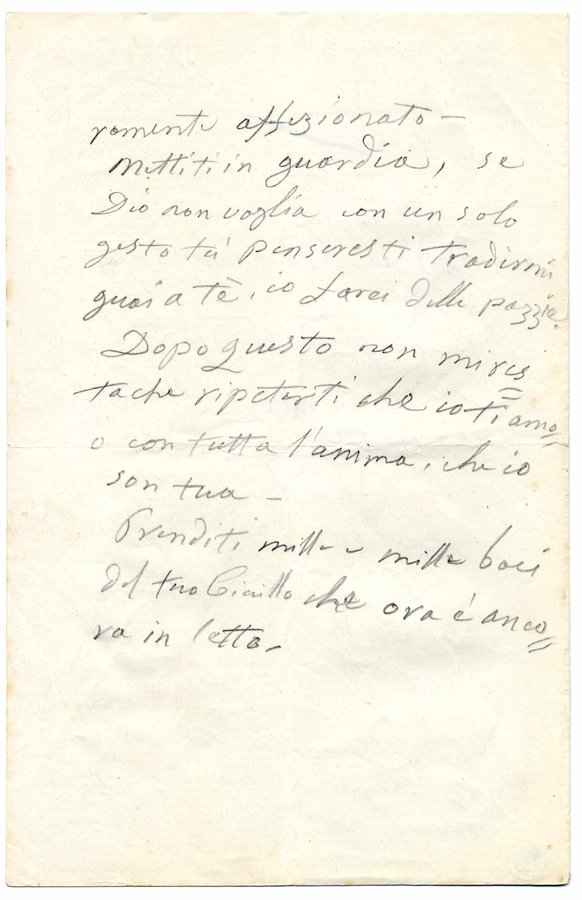 ramente affezionato —
Mettiti in guardia, se
Dio non voglia con un solo
gesto tu penseresti tradirmi
guai a tè, io farei delle pazzie.
Dopo questo non mi res=
ta che ripeterti che io ti amo=
o con tutta l'anima, che io
son tua —
Prenditi mille e mille baci
del tuo che ora é anco=
ra in letto.